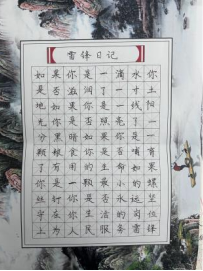 雷锋日记
如果你是一滴水你
是否滋润了一寸土
地如果你是一线阳
光你是否照亮了一
分黑暗如果你是一
颗粮食你是否哺育
了有用的生命如果
你是一颗最小的螺
丝钉你是否永远坚
守在你生活的岗位
上为人民服务雷锋